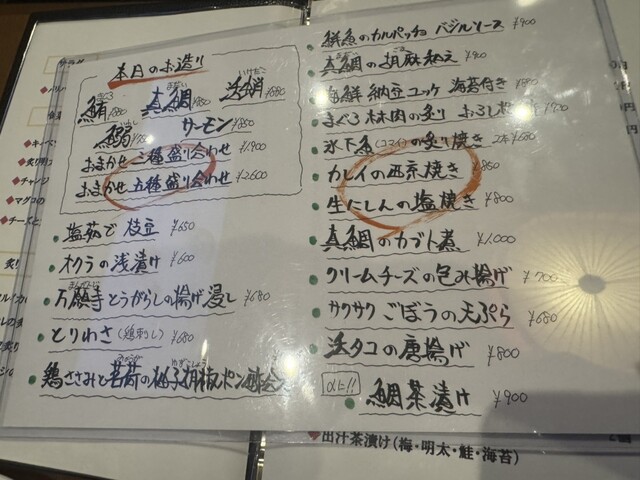 本日のお造り
鮪 真鯛 活蛸 ¥680
鰯 サーモン ¥850
おまかせ 三種盛り合わせ ¥1,900
おまかせ 五種盛り合わせ ¥2,600
塩茹で 枝豆 ¥650
オクラの浅漬け ¥600
万願寺とうがらしの揚げ浸し ¥680
とりわさ(鶏刺し) ¥680
鶏ささみと茗荷の柚子胡椒ポン酢
鮮魚のカルパッチョ バジルソース ¥900
真鯛の胡麻和え ¥900
海鮮納豆ユッケ 海苔付き ¥880
まぐろ ほほ肉の炙り おろしポン
氷下魚(コマイ)の炙り焼き 2本¥680
カレイの西京焼き ¥850
生にしんの塩焼き ¥800
真鯛のカブト煮 ¥1,000
クリームチーズの包み揚げ ¥700
サクサクごぼうの天ぷら ¥680
活タコの唐揚げ ¥800
〆に!! 鯛茶漬け ¥900
出汁茶漬け(梅・明太・鮭・海苔)